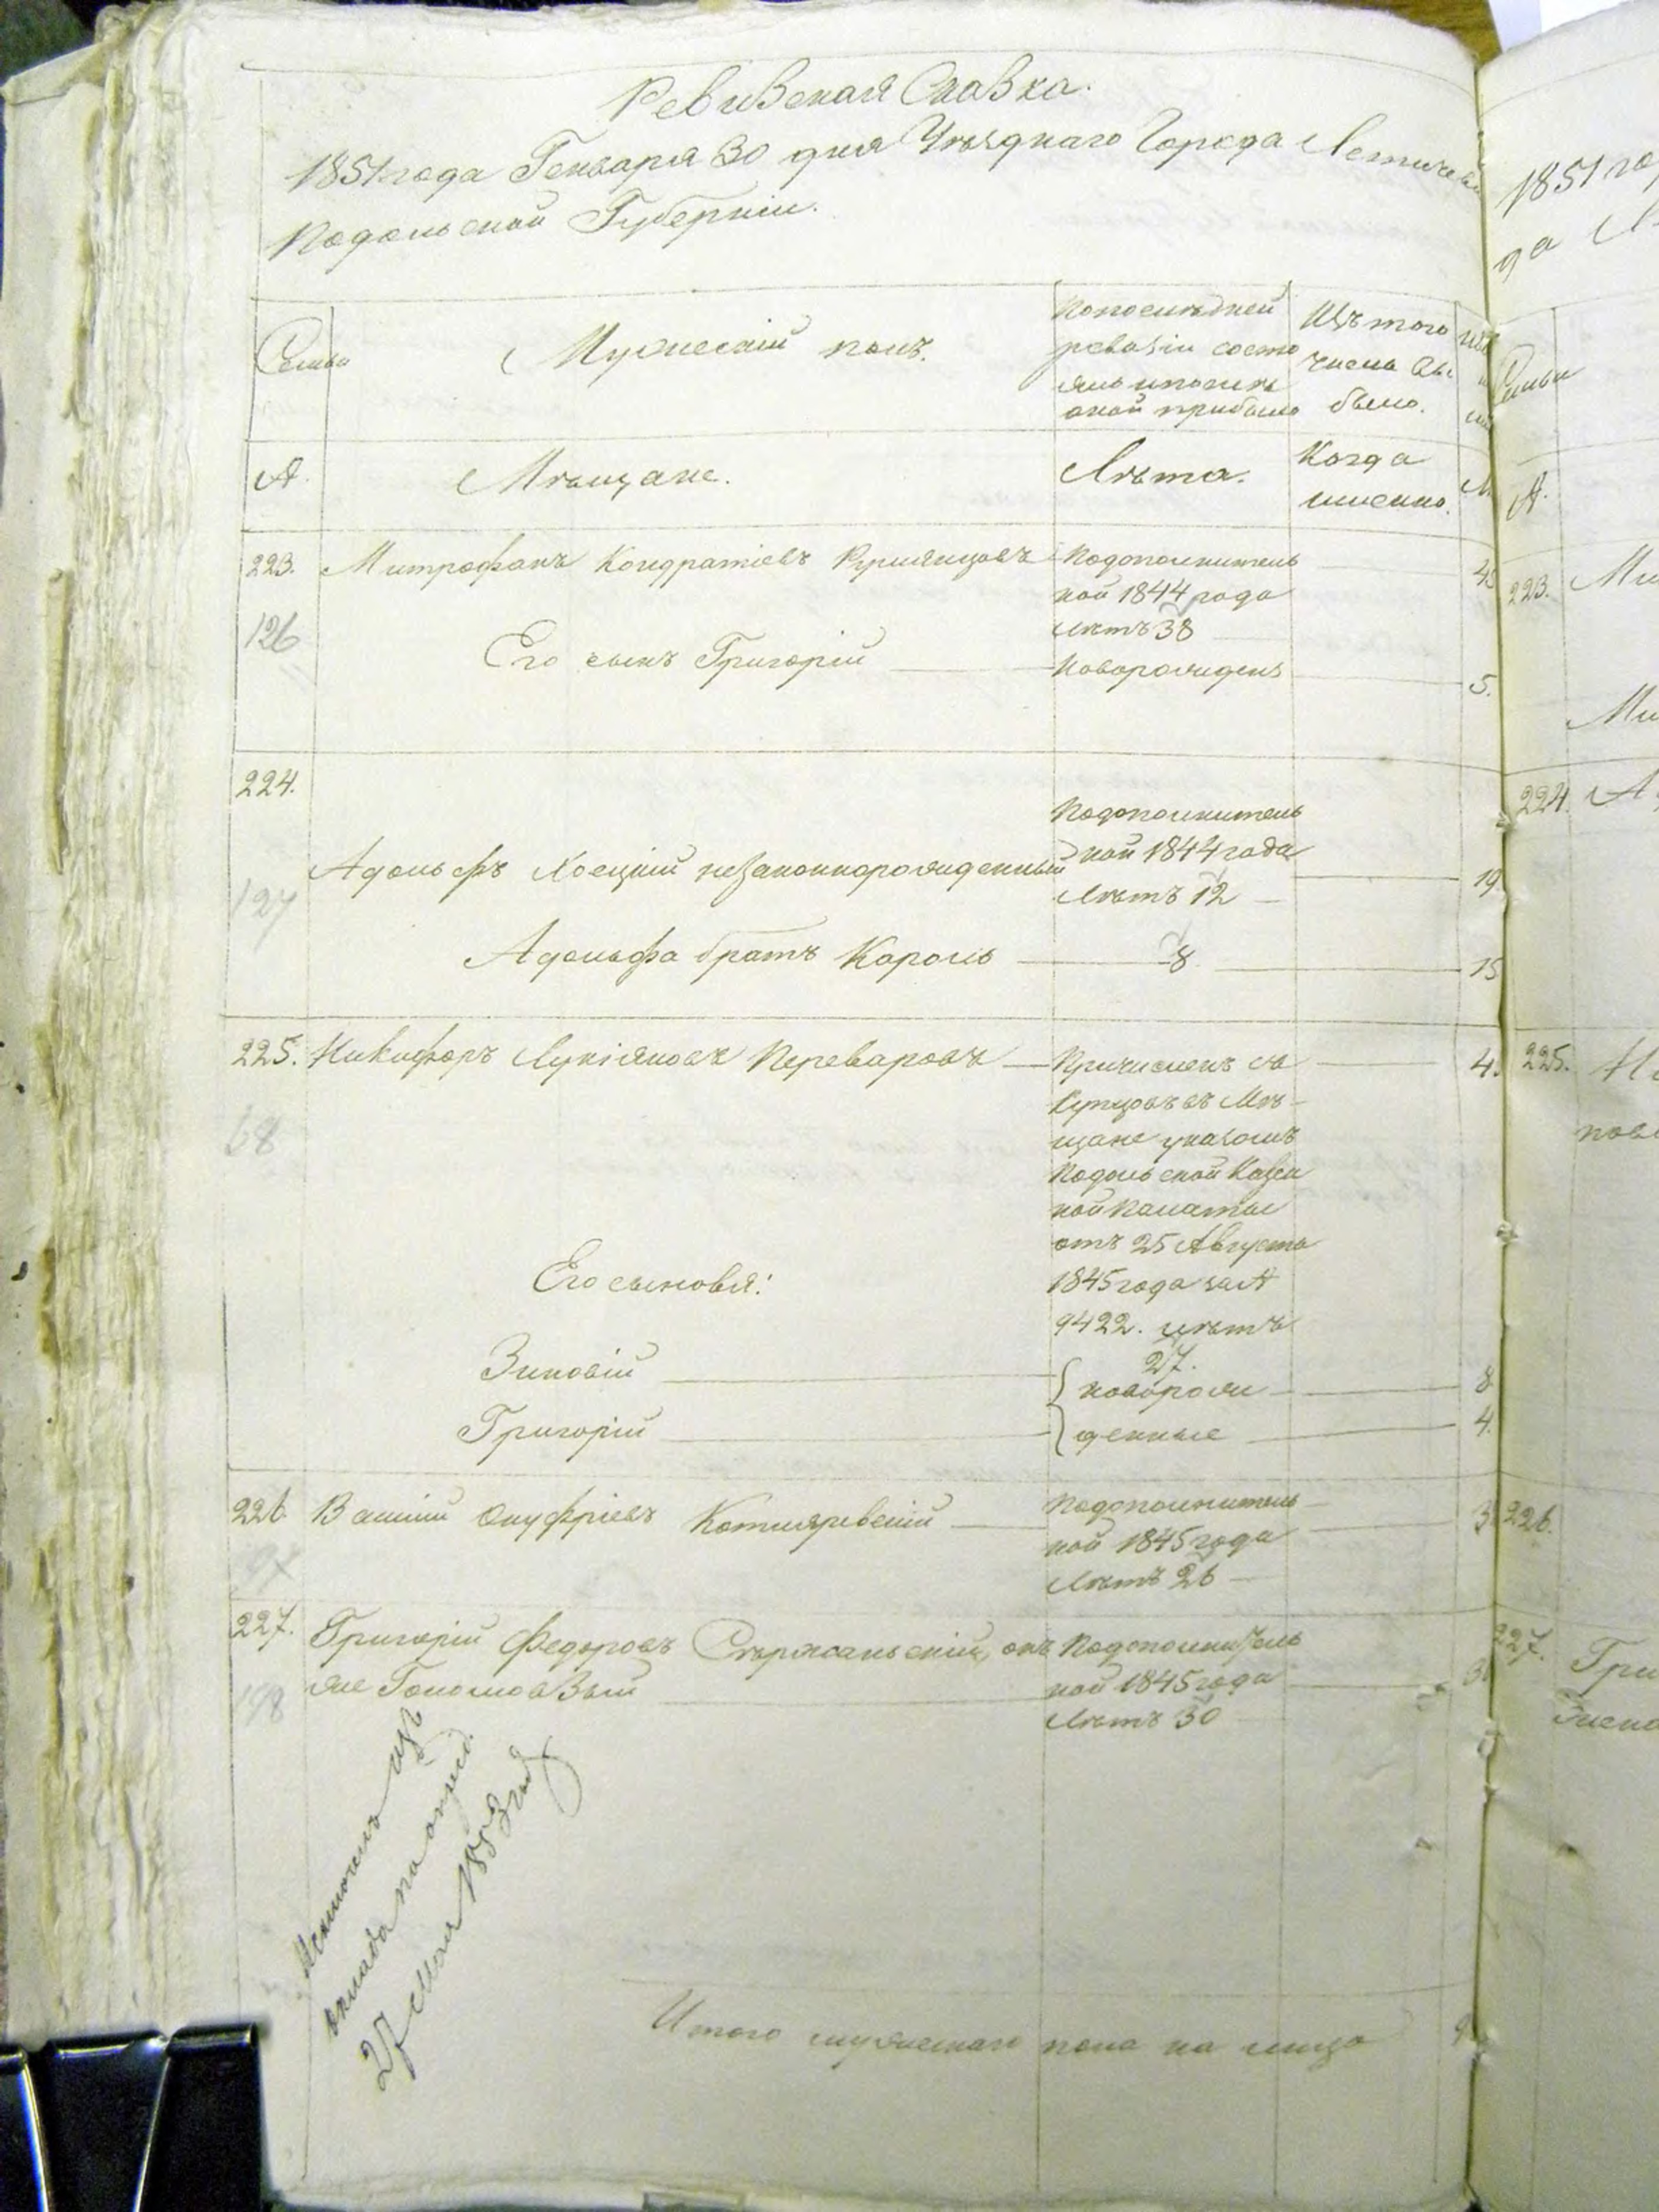 Ревизская Сказка.
1851 года Генваря 30 дня Уѣзднаго Города Летичева
Подольской Губерніи.
Семьи
Мужескій полъ.
По послѣдней
ревизіи состо
яло и после
оной прибыло
Изъ того
числа вы
было.
А.
Мѣщане.
Лѣта.
Когда
именно.
223. Митрофанъ Кондратіевъ Румянцовъ
По дополнитель
ной 1844 года
лѣтъ 38
126
Его сынъ Григорій
Новорожденъ
5.
224.
По дополнитель
ной 1844 года
лѣтъ 12
Адольфъ незаконнорожденный
19
127
Адольфа братъ Кароль
8
15
225. Никифоръ Лукіяновъ Переваровъ
Причисленъ съ
Купцовъ въ Мѣ-
щане указомъ
Подольской Казен
ной Палаты
отъ 25 Августа
1845 года за №
9422. лѣтъ
27.
68
Его сыновья:
Зиновій
новорож
8
Григорій
денные
4.
226 Василій Онуфріевъ Котляревскій
По дополнитель
ной 1845 года
лѣтъ 26
227. Григорій Федоровъ онъ
же
По дополнитель
ной 1845 года
лѣтъ 30
198
Исключенъ изъ
оклада по опред.
27 Мая 1853 года
Итого мужескаго пола на лицо
1851 го
да
Семьи
А.
223. Ми
Ми
224. А
225. Ни
226.
227. Гри